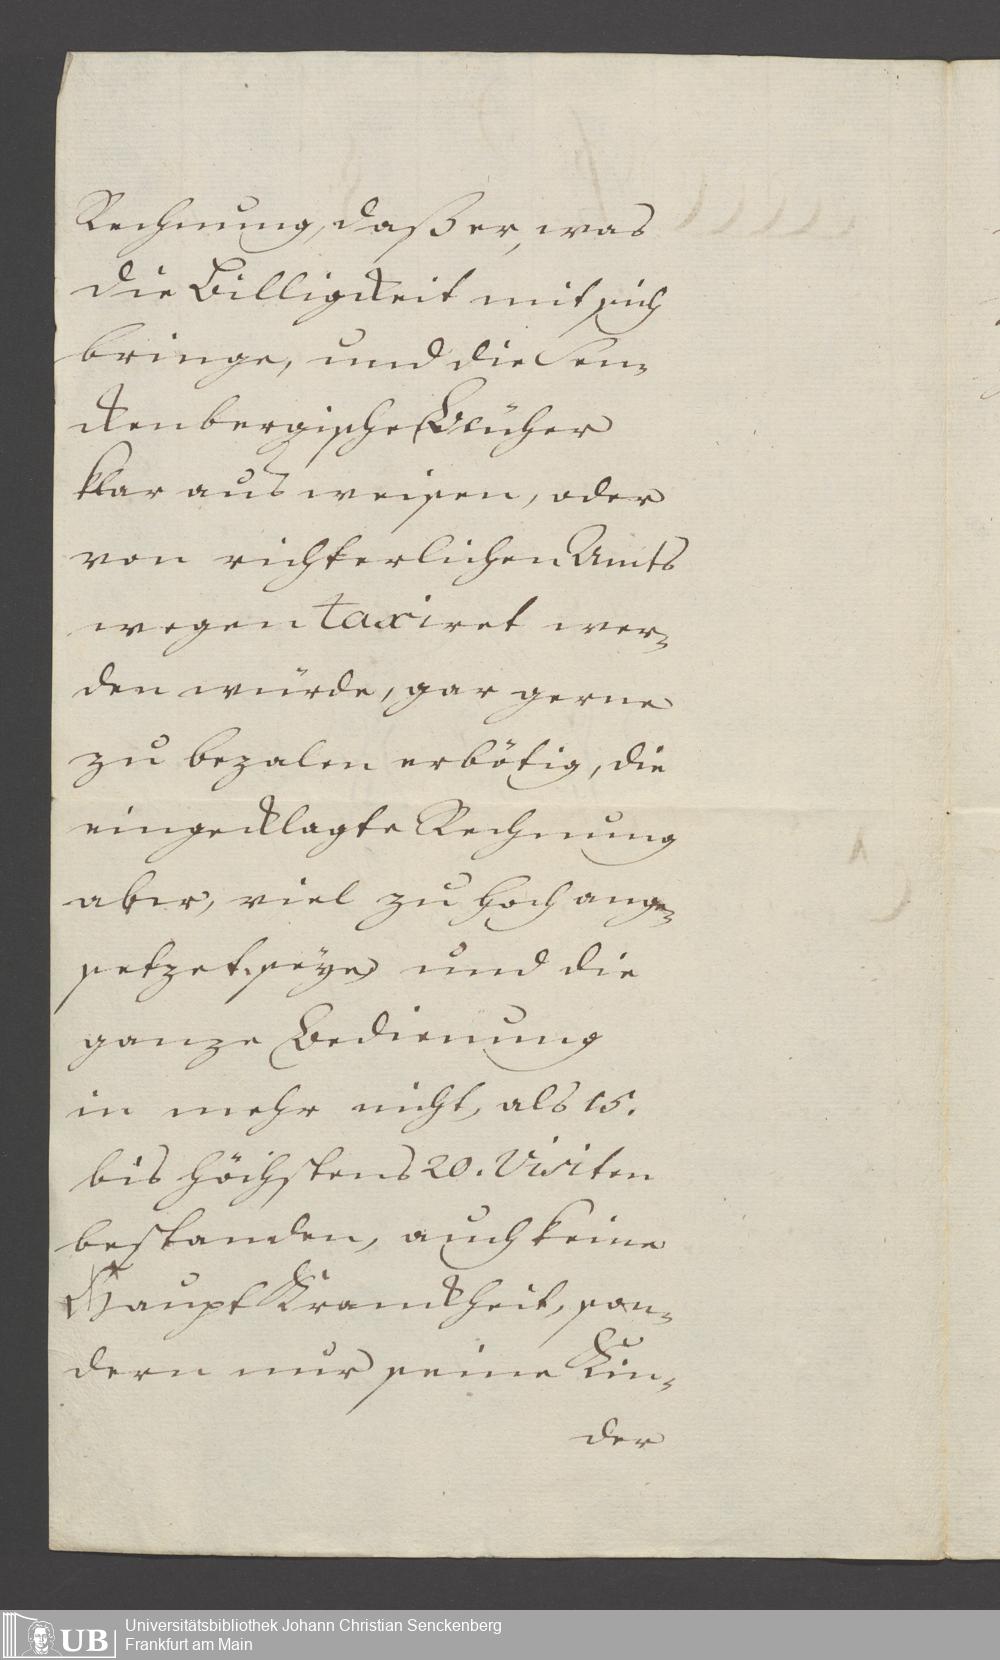 Rechnung, daß er, was
die Billigckeit mit sich
bringe, und die Sen-
ckenbergische Bücher
klar aus weisen, oder
von richterlichen Amts
wegen taxiret wer-
den würde, gar gerne
zu bezalen erbötig, die
eingecklagte Rechnung
aber, viel zu hoch ange-
setzet seÿe, und die
ganze Bedienung
in mehr nicht, als 15.
bis höchstens 20. Visiten
bestanden, auch keine
Haupt Kranckheit, son-
dern nur seine Kin-
der
UB
Universitätsbibliothek Johann Christian Senckenberg
Frankfurt am Main